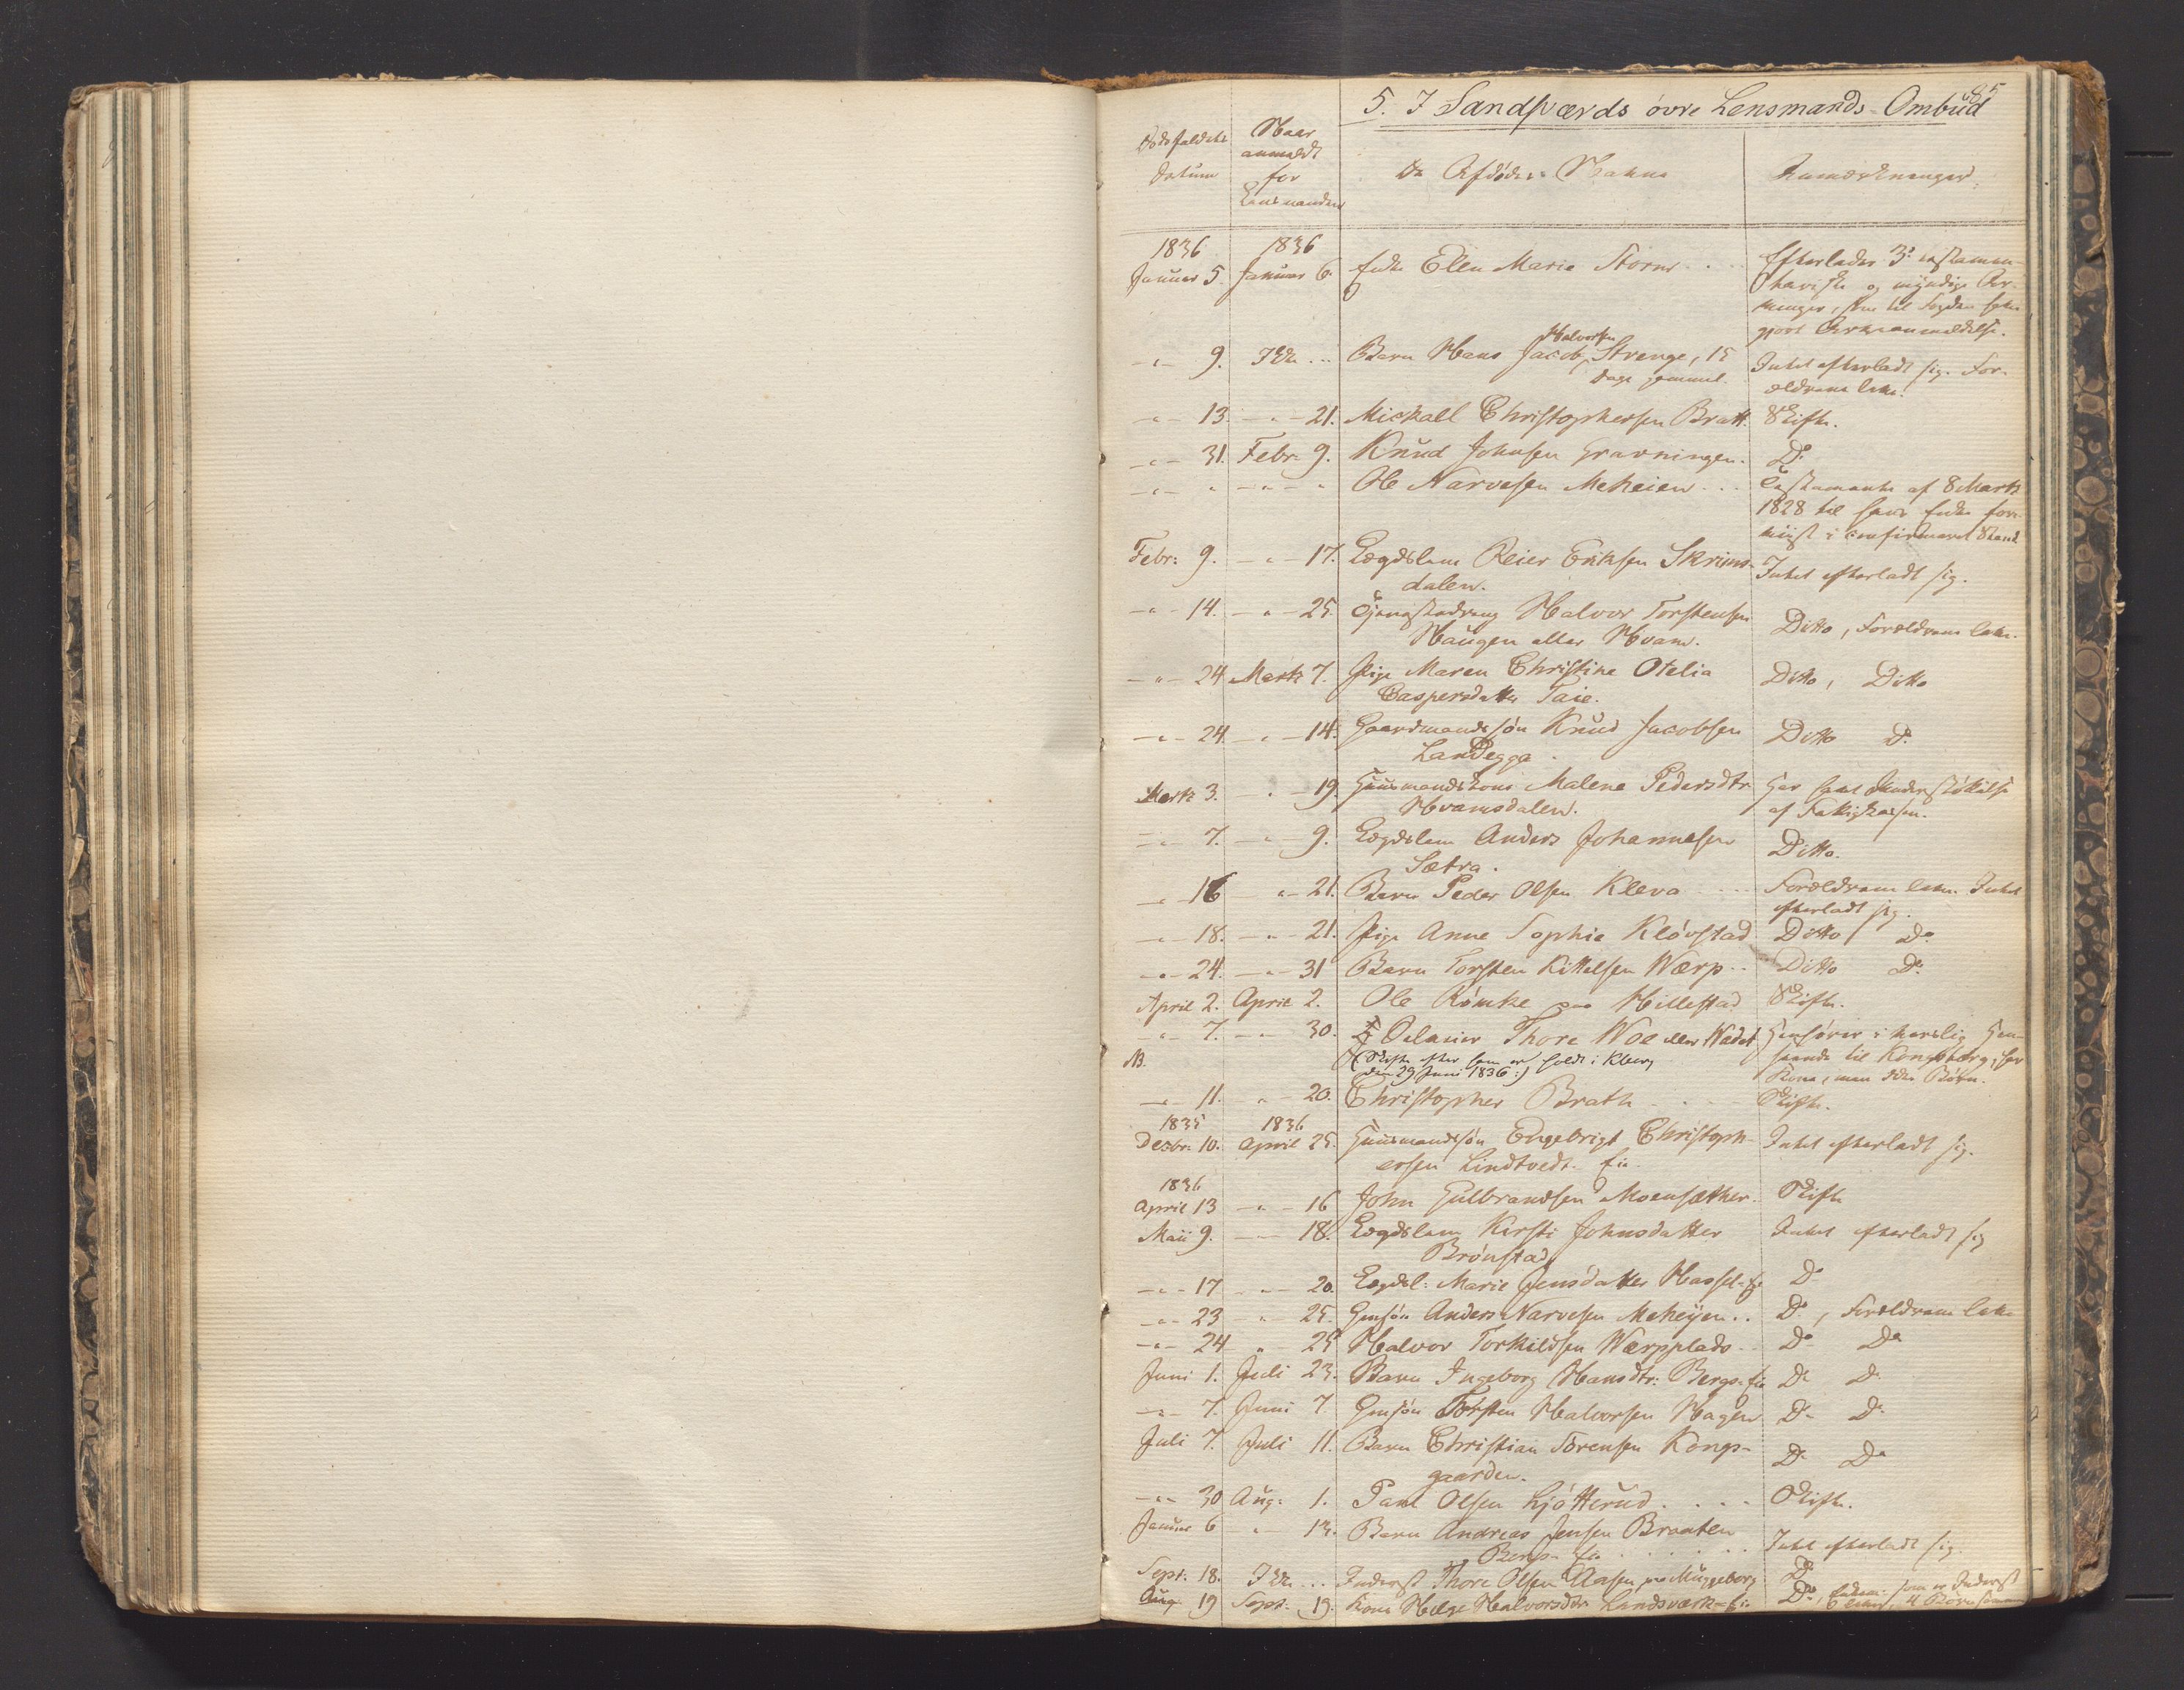 85
5. I Sandsværds øvre Lensmands-Ombud
Dødsfaldets Datum
Naar anmeldt for Lensmanden
De Afdødes Navne
Anmærkninger.
1836 1836
Januar 5. Januar 6. Enke Elen Maria Storm . . . Efterlader 3
og myndige Ar-
vinger, som til Fogden have
gjort
Halvorsen
-"- 9. Ikke ... Barn Hans Jacob Strenge, 15
Dage gammel.
Intet efterladt sig. For-
ældrene leve.
-"- 13. -"- 21. Mickall Christophersen Bratt. Skifte.
-"- 31. Febr. 9. Knud Johnsen Gravningen. Do
-"- " -"- " Ole Narvesen Meheien . . . Testamente af 8 Marts
1828 til hans Enke
i confirmeret Stand
Febr: 9. -"- 17. Lægdslem Reier Eriksen Skrims-
dalen.
Intet efterladt sig.
-"- 14. -"- 25. Tjenestedreng Halvor Torstensen
Haugen eller Hvam.
Ditto, Forældrene leve.
-"- 24 Marts 7. Pige Maren Christine Otelia
Caspersdatter Taie.
Ditto, Ditto
-"- 24. -"- 14. Gaardmandssøn Knud Jacobsen
Landegga.
Ditto Do
Marts 3. -"- 19. Huusmandskone Malene Pedersdtr.
Hvamsdalen.
Har havt Understøttelse
af Fattigkassen.
-"- 7. -"- 9. Lægdslem Anders Johannesen
Sætra.
Ditto.
-"- 16 -"- 21. Barn Peder Olsen Kleva . . . Forældrene leve. Intet
efterladt sig.
-"- 18. -"- 21. Pige Anne Sophie Kløvstad Ditto Do
-"- 24. -"- 31 Barn Torsten Kittelsen Wærp . . Ditto Do
April 2. April 2. Ole Rømke paa Hillestad Skifte.
-"- 7. -"- 30. Thore Woe eller Wadet. Henhører i
til Kongsberg, har
NB. (Skifte efter ham er holdt i Kberg
den 29 Juni 1836:)
Kone, men ikke Børn.
-"- 11. " - 20. Christopher Brath . . . Skifte.
1835 1836
Decbr: 10. April 25. Huusmandssøn Engebrigt Christoph-
ersen Lindtvedt-Eie.
Intet efterladt sig.
1836
April 13 -"- 16 John Gulbrandsen Moensæther. Skifte
Maii 9. -"- 18. Lægdslem Kirsti Johnsdatter
Brønstad
Intet efterladt sig
-"- 17 -"- 20. Lægdsl: Marie Jensdatter Hassel- Do
-"- 23 -"- 25. Gmsøn Anders Narvesen Meheijen . . Do, Forældrene leve
-"- 24 " 25 Halvor Torkildsen Wærpplads . . Do Do
Juni 1. Juli 23. Barn Ingeborg Hansdtr: Bergs-Eie Do Do
-"- 7. Juni 7 Gmsøn Torsten Halvorsen Hagen Do Do
Juli 7. Juli 11. Barn Christian Sørensen Kongs-
gaarden.
Do Do
-"- 30 Aug. 1. Paul Olsen Ljøtterud . . . . Skifte.
Januar 6 " 13. Barn Andreas Jensen Braaten
Bergs-Eie . . . .
Intet efterladt sig.
Sept: 18. Ikke ... Inderst Thore Olsen Aasen paa Muggeborg Do
Aug. 19 Sept. 19. Kone Helge Halvorsdtr: Landsværk-Eie Do, som er Inderst
4 Børn